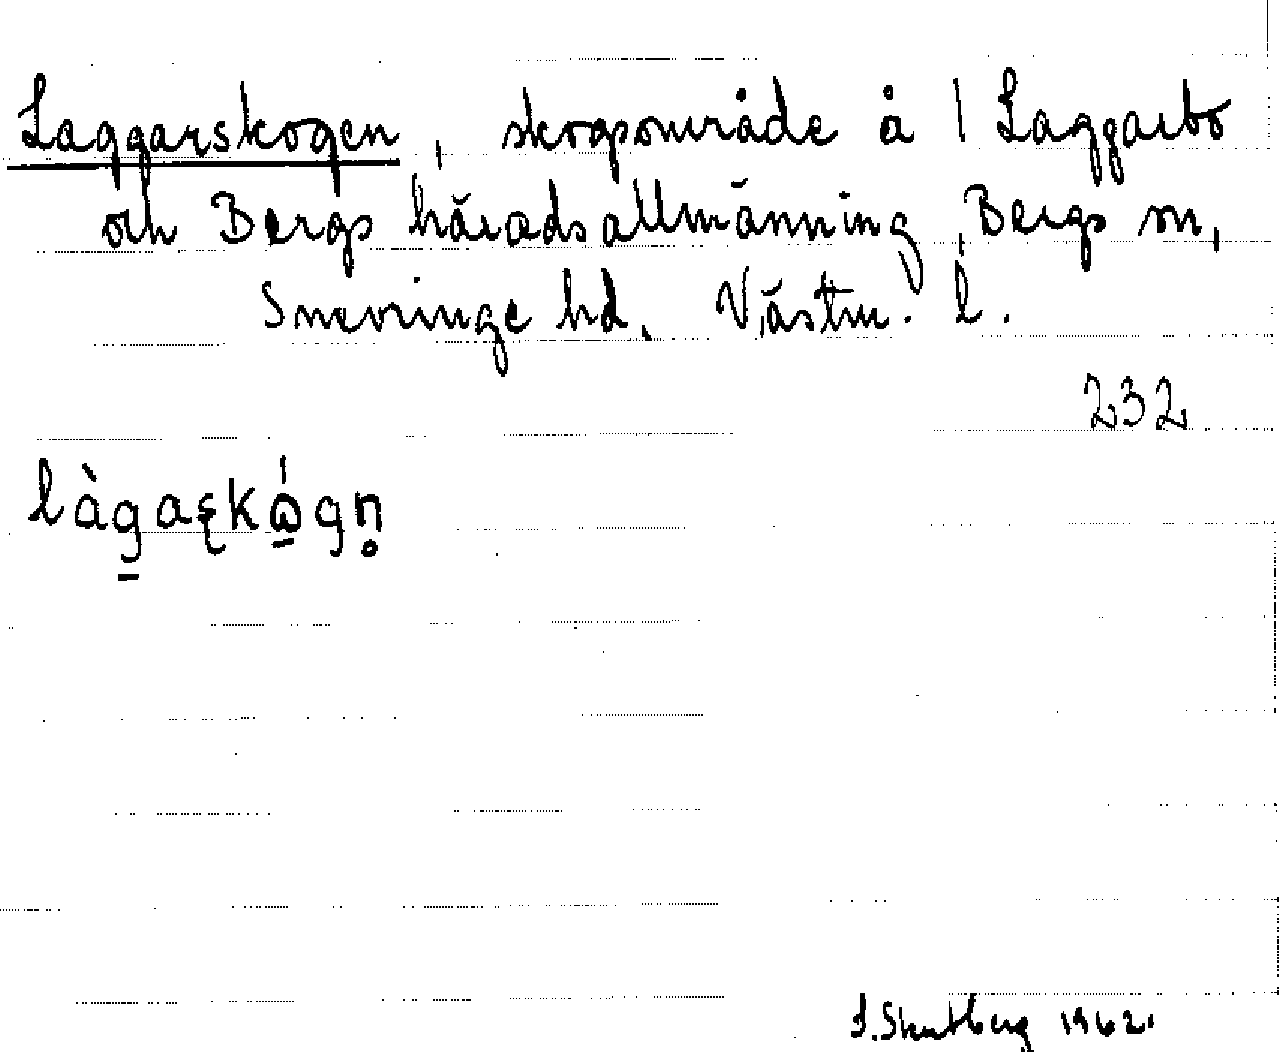 Laggarskogen, skogsområde å | Laggarbo
och Bergs häradsallmänning, Bergs sn,
Snevringe hd. Västm. l.
232
làgaʂkǻgn̥
1962